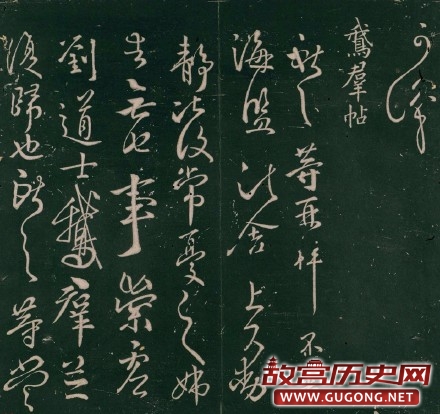 鵞羣帖
獻之等再拜不
海鹽諸舍上下動
靜比復常憂之姊
告無他事崇虛
劉道士鵞羣並
復歸也獻之等當
故宫历史网
WWW.GUGONG.NET